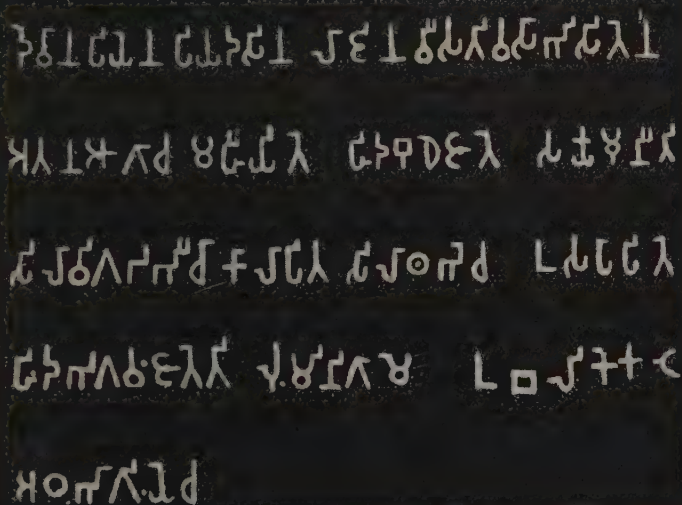 𑀤𑁂𑀯𑀸𑀦𑀁𑀧𑀺𑀬𑁂𑀦 𑀧𑀺𑀬𑀤𑀲𑀺𑀦 𑀮𑀸𑀚𑀺𑀦 𑀯𑀻𑀲𑀢𑀺𑀯𑀲𑀸𑀪𑀺𑀲𑀺𑀢𑁂𑀦
𑀅𑀢𑀦 𑀆𑀕𑀸𑀘 𑀫𑀳𑀻𑀬𑀺𑀢𑁂 𑀳𑀺𑀤 𑀩𑀼𑀥𑁂 𑀚𑀸𑀢𑁂 𑀲𑀓𑁆𑀬𑀫𑀼𑀦𑀺𑀢𑀺
𑀲𑀺𑀮𑀸 𑀯𑀺𑀕𑀥𑀪𑀺 𑀘𑀸 𑀓𑀸𑀮𑀸𑀧𑀺𑀢 𑀲𑀺𑀮𑀸𑀣𑀪𑁂 𑀘 𑀉𑀲𑀧𑀸𑀧𑀺𑀢𑁂
𑀳𑀺𑀤 𑀪𑀕𑀯𑀁 𑀚𑀸𑀢𑁂𑀢𑀺 𑀮𑀼𑀁𑀫𑀺𑀦𑀺 𑀕𑀸𑀫𑁂 𑀉𑀩𑀮𑀺𑀓𑁂 𑀓𑀝𑁂
𑀅𑀞𑀪𑀸𑀕𑀺𑀬𑁂 𑀘